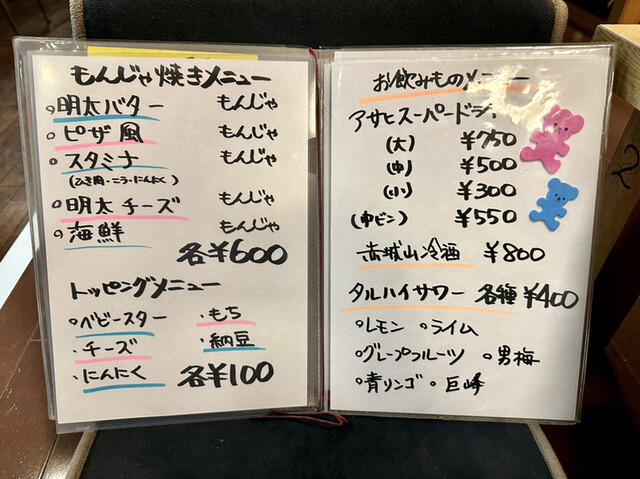 もんじゃ焼きメニュー
明太バター もんじゃ
ピザ風 もんじゃ
スタミナ もんじゃ
(ひき肉・ニラ・にんにく)
明太チーズ もんじゃ
海鮮 もんじゃ
各¥600
トッピングメニュー
ベビースター ・もち
・チーズ ・納豆
・にんにく 各¥100
お飲みものメニュー
アサヒスーパードライ
(大) ¥750
(中) ¥500
(小) ¥300
(中ビン) ¥550
赤城山冷酒 ¥800
タルハイサワー 各種 ¥400
レモン ライム
グレープフルーツ 男梅
青リンゴ 巨峰
2